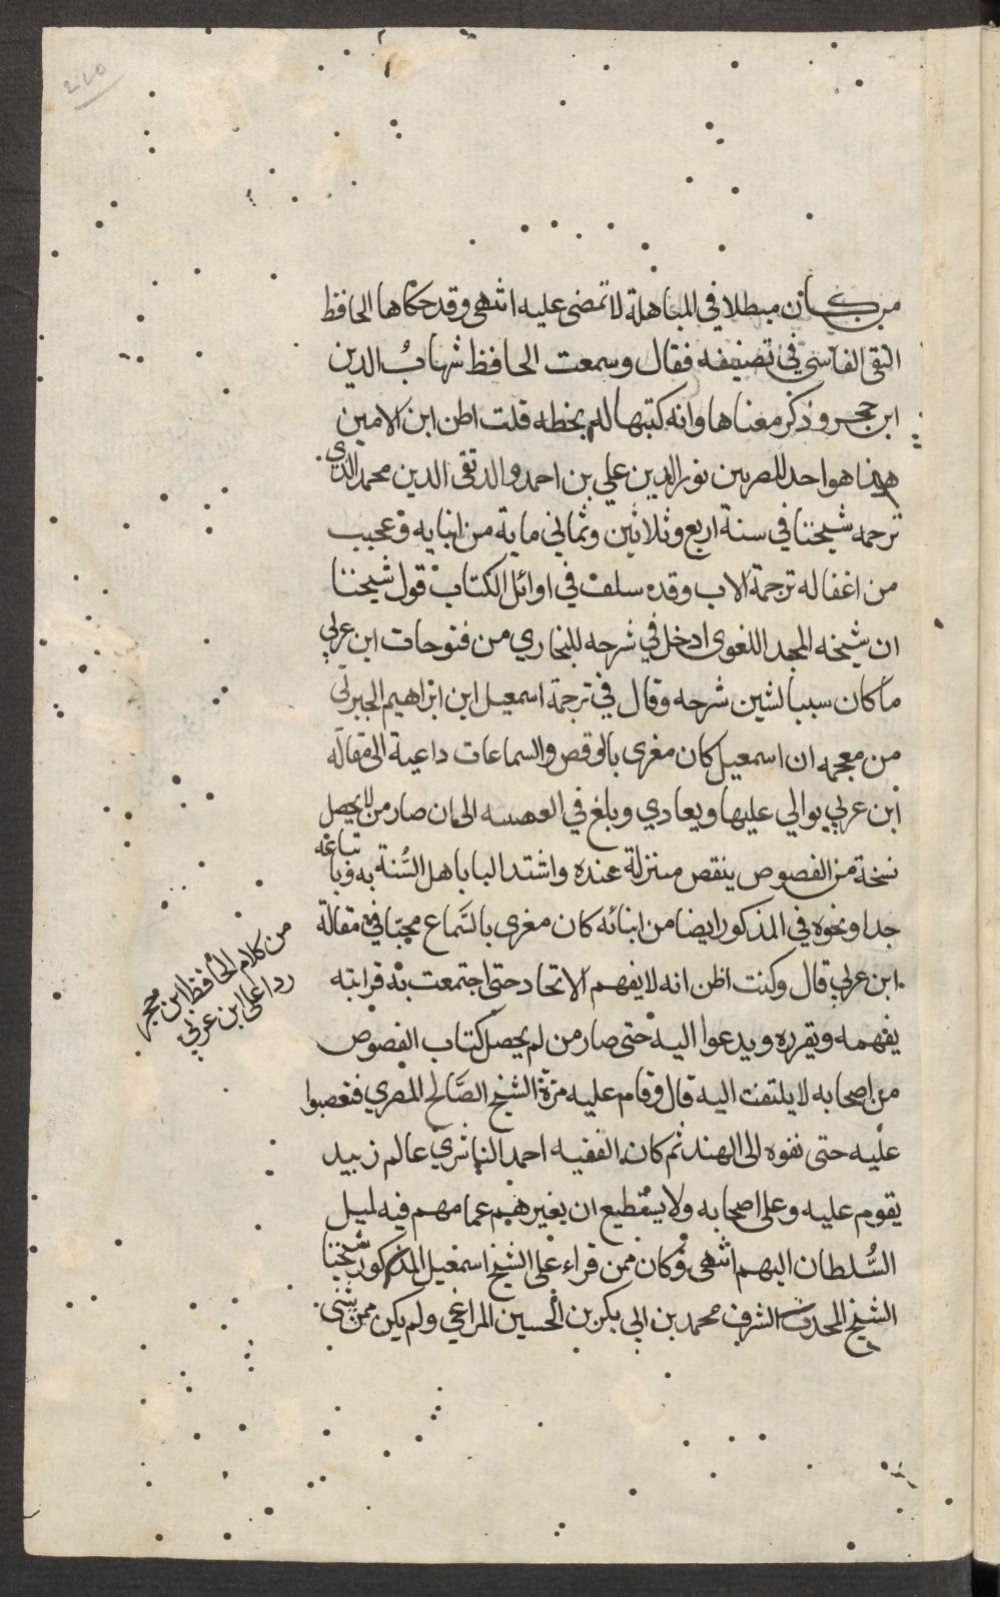 من كان مبطلا في المباهلة لا تمضى عليه انتهى وقد حكاها الحافظ
التقى الفاسي في تصنيفه فقال وسمعت الحافظ شهاب الدين
ابن حجر وذكر معناها وانه كتبها له بخطه قلت اظن ابن الامين
هذا هو احد المصريين نور الدين علي بن احمد والد تقى الدين محمد الذي
ترجمه شيخنا في سنة اربع وثلاثين وثماني ماية من انبايه وعجيب
من اغفاله ترجمة الاب وقده سلف في اوائل الكتاب قول شيخنا
ان شيخه المجد اللغوى ادخل في شرحه للبخاري من فتوحات ابن عربي
ما كان سببا لشين شرحه وقال في ترجمة اسمعيل ابن ابراهيم الجبرتي
من معجمه ان اسمعيل كان مغرى بالرقص والسماعات داعية الى مقالة
ابن عربي يوالي عليها ويعادي وبلغ في العصبيه الى ان صار من لا يحصل
نسخة من الفصوص ينقص منزلة عنده واشتد البلا باهل السنة به وباتباعه
جدا ونحوه في المذكور ايضا من انبائه كان مغرى بالسماع محبا في مقالة
ابن عربي قال وكنت اظن انه لا يفهم الاتحاد حتى اجتمعت به فرايته
يفهمه ويقرره ويدعوا اليه حتى صار من لم يحصل كتاب الفصوص
من اصحابه لا يلتفت اليه قال وقام عليه مرة الشيخ الصالح المصري فتعصبوا
عليه حتى نفوه الى الهند ثم كان الفقيه احمد الناشري عالم زبيد
يقوم عليه وعلى اصحابه ولا يستطيع ان يغيرهم عما هم فيه لميل
السلطان اليهم انتهى وكان ممن قراء على الشيخ اسمعيل المذكور شيخنا
الشيخ المحدث الشرف محمد بن ابي بكر بن الحسين المراغي ولم يكن ممن يثنى
من كلام الحافظ ابن حجر
ردا على ابن عربي